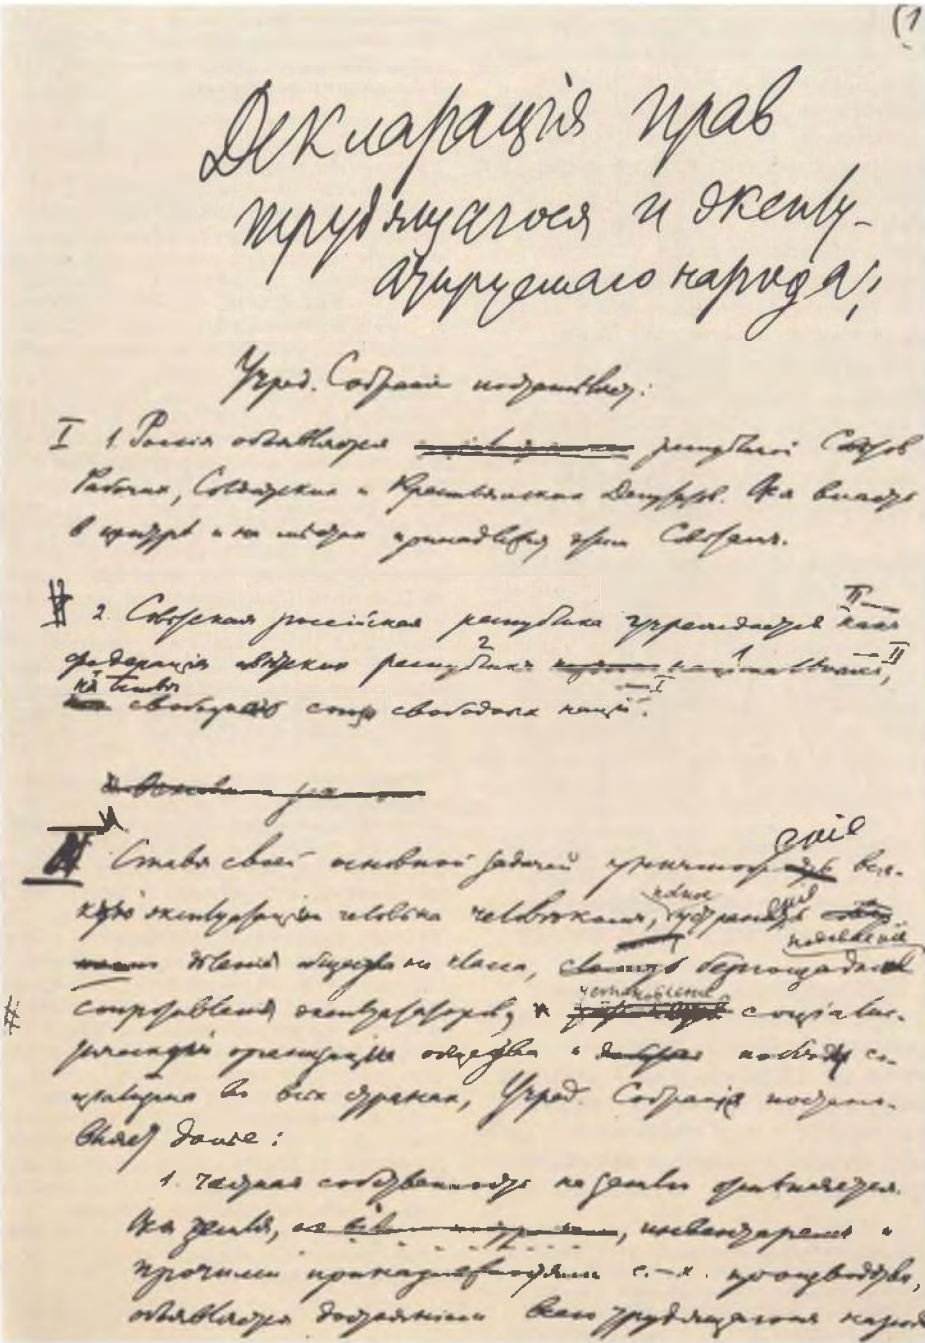 (1
Декларація прав
трудящагося и эксплу-
атируемаго народа:
Учред. Собраніе постановляет:
I 1. Россія объявляется республикой Совѣтов
Рабочих, Солдатских и Крестьянских Депутатов. Вся власть
в центрѣ и на мѣстах принадлежит этим Совѣтам.
II
2. Совѣтская россійская республика учреждается как
2 1 II
федерація совѣтских республик національных,
на основѣ I
свободнаго союза свободных націй.
II
ніе
Ставя своей основной задачей уничтож вся-
полное ніе
кой эксплуатаціи человѣка человѣком, устран
подавленіе
дѣленія общества на классы, безпощадное
установленіе
сопротивленія эксплуататоров, соціалис-
тической организаціи общества и побѣду со-
ціализма во всѣх странах, Учред. Собраніе постано-
вляет далѣе:
1. Частная собственность на землю отмѣняется.
Вся земля, инвентарем и
прочими принадлежностями с.-х. производства,
объявляется достояніем всего трудящагося народа